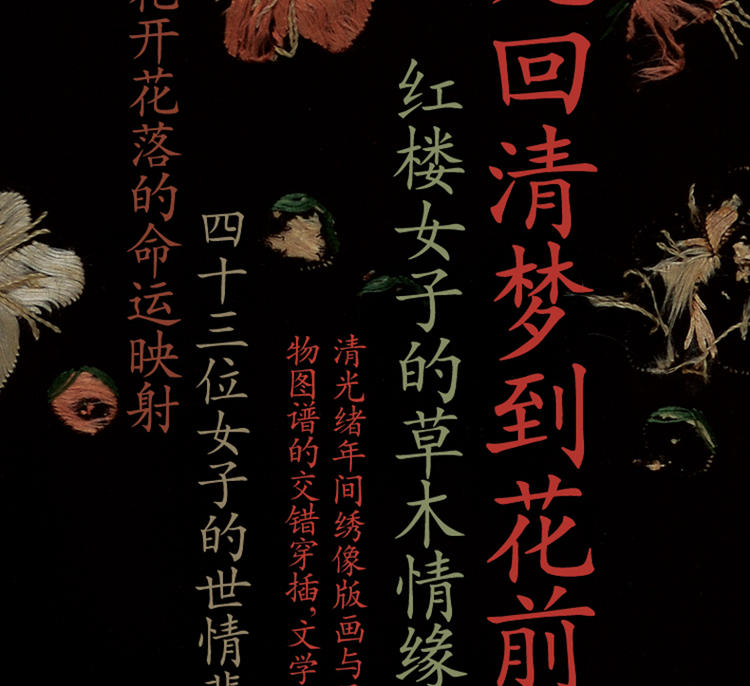 回清梦到花前
红楼女子的草木情缘
清光绪年间绣像版画与
物图谱的交错穿插，文学
四十三位女子的世情
花开花落的命运映射